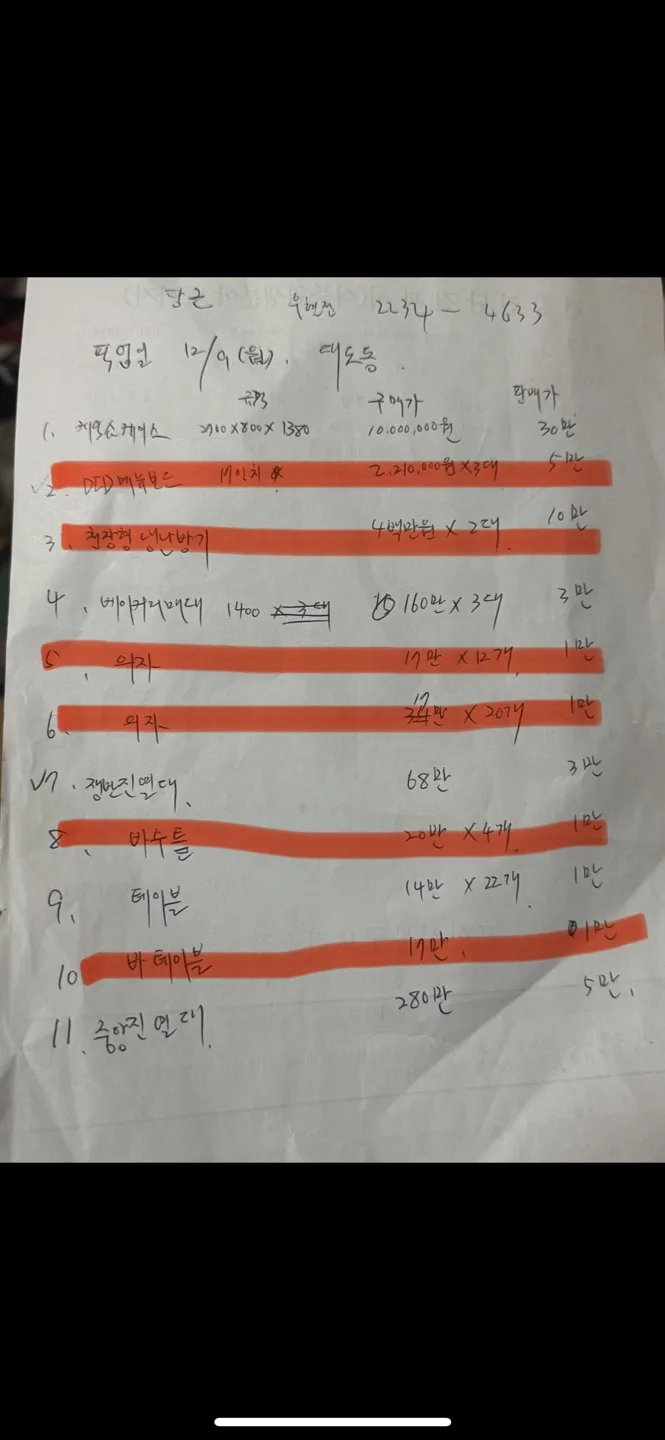 당근 우현점 2234 - 4633
픽업일 12/9 (월). 대도동.
규격 구매가 판매가
1. 케익쇼케이스 2700 x 800 x 1380 10.000,000원 30만
√2. DID메뉴보드 17인치 2.210.000원 x 3대 5만
3. 천장형 냉난방기 4백만원 x 2대. 10만
4. 베이커리매대 1400 x 3대 160만 x 3대 3만
5. 의자 17만 x 12개. 1만
6. 의자 17만 x 20개 1만
√7. 쟁반진열대. 68만 3만
8. 바수틀 20만 x 4개. 1만
9. 테이블 14만 x 22개. 1만
10 바 테이블 17만. 1만
11. 중앙진열대. 280만 5만.